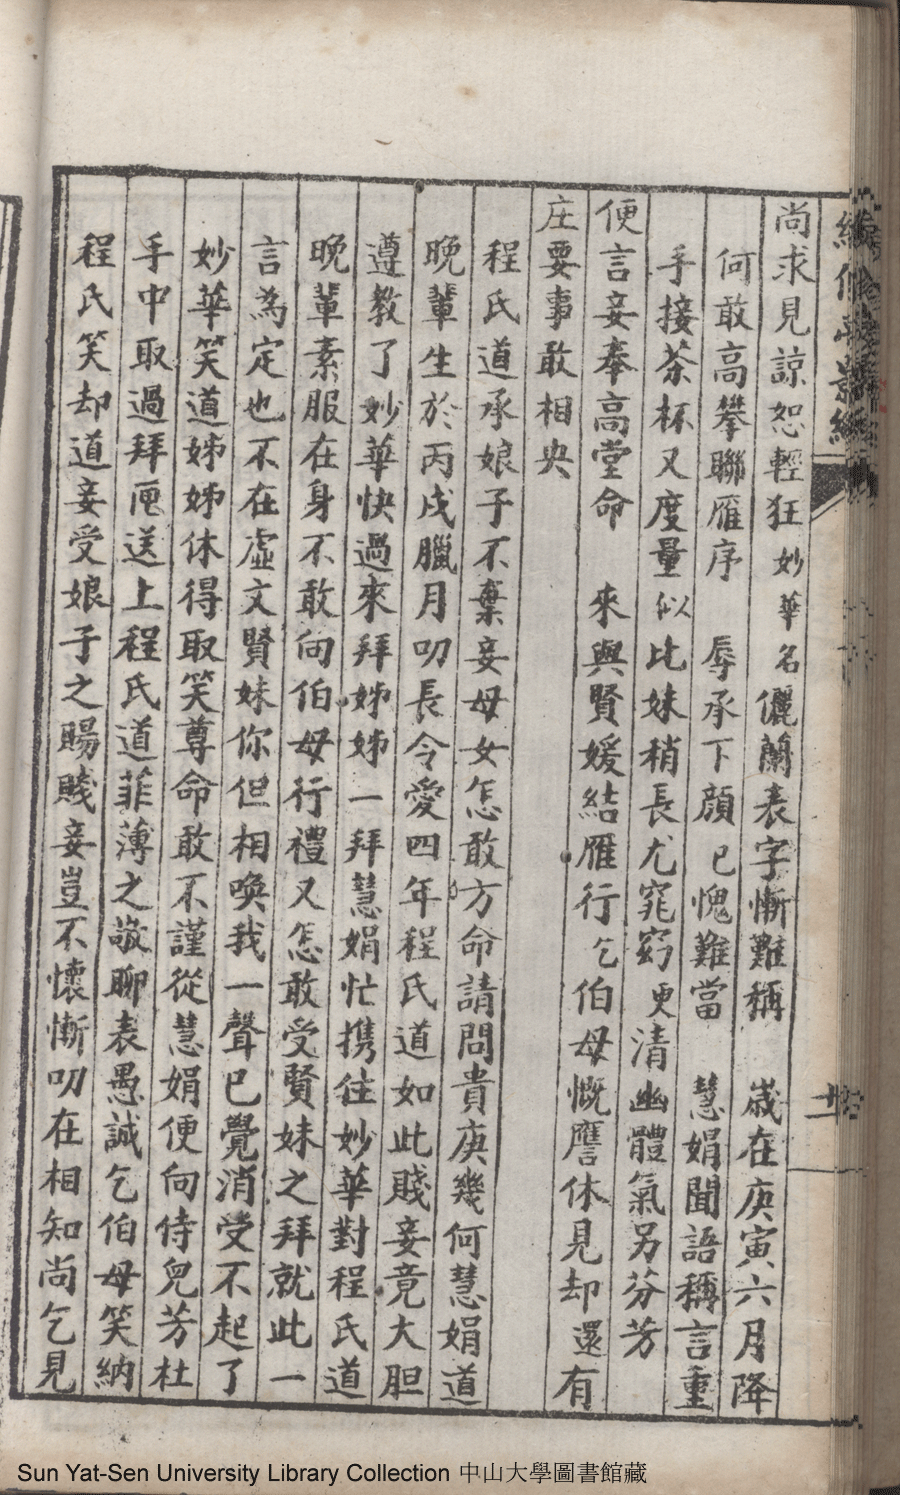 尚求見諒恕輕狂 妙華名儷蘭表字慚難稱 歲在庚寅六月降
何敢高攀聯雁序 辱承下顔 已愧難當 慧娟聞語稱言重
手接茶杯又度量似比妹稍長尤窕窈更清幽體氣另芬芳
便言妾奉高堂命 來與賢媛結雁行乞伯母慨譍休見却還有
庄要事敢相央
程氏道承娘子不棄妾母女怎敢方命請問貴庚幾何慧娟道
晚輩生於丙戌臘月叨長令愛四年程氏道如此賤妾竟大胆
遵教了妙華快過來拜姊姊一拜慧娟忙携住妙華對程氏道
晚輩素服在身不敢向伯母行禮又怎敢受賢妹之拜就此一
言為定也不在虛文賢妹你但相喚我一聲已覺消受不起了
妙華笑道姊姊休得取笑尊命敢不謹從慧娟便向侍兒芳杜
手中取過拜匣送上程氏道菲薄之敬聊表愚誠乞伯母笑納
程氏笑却道妾受娘子之賜賤妾豈不懷慚叨在相知尚乞見
Sun Yat-Sen University Library Collection 中山大學圖書館藏